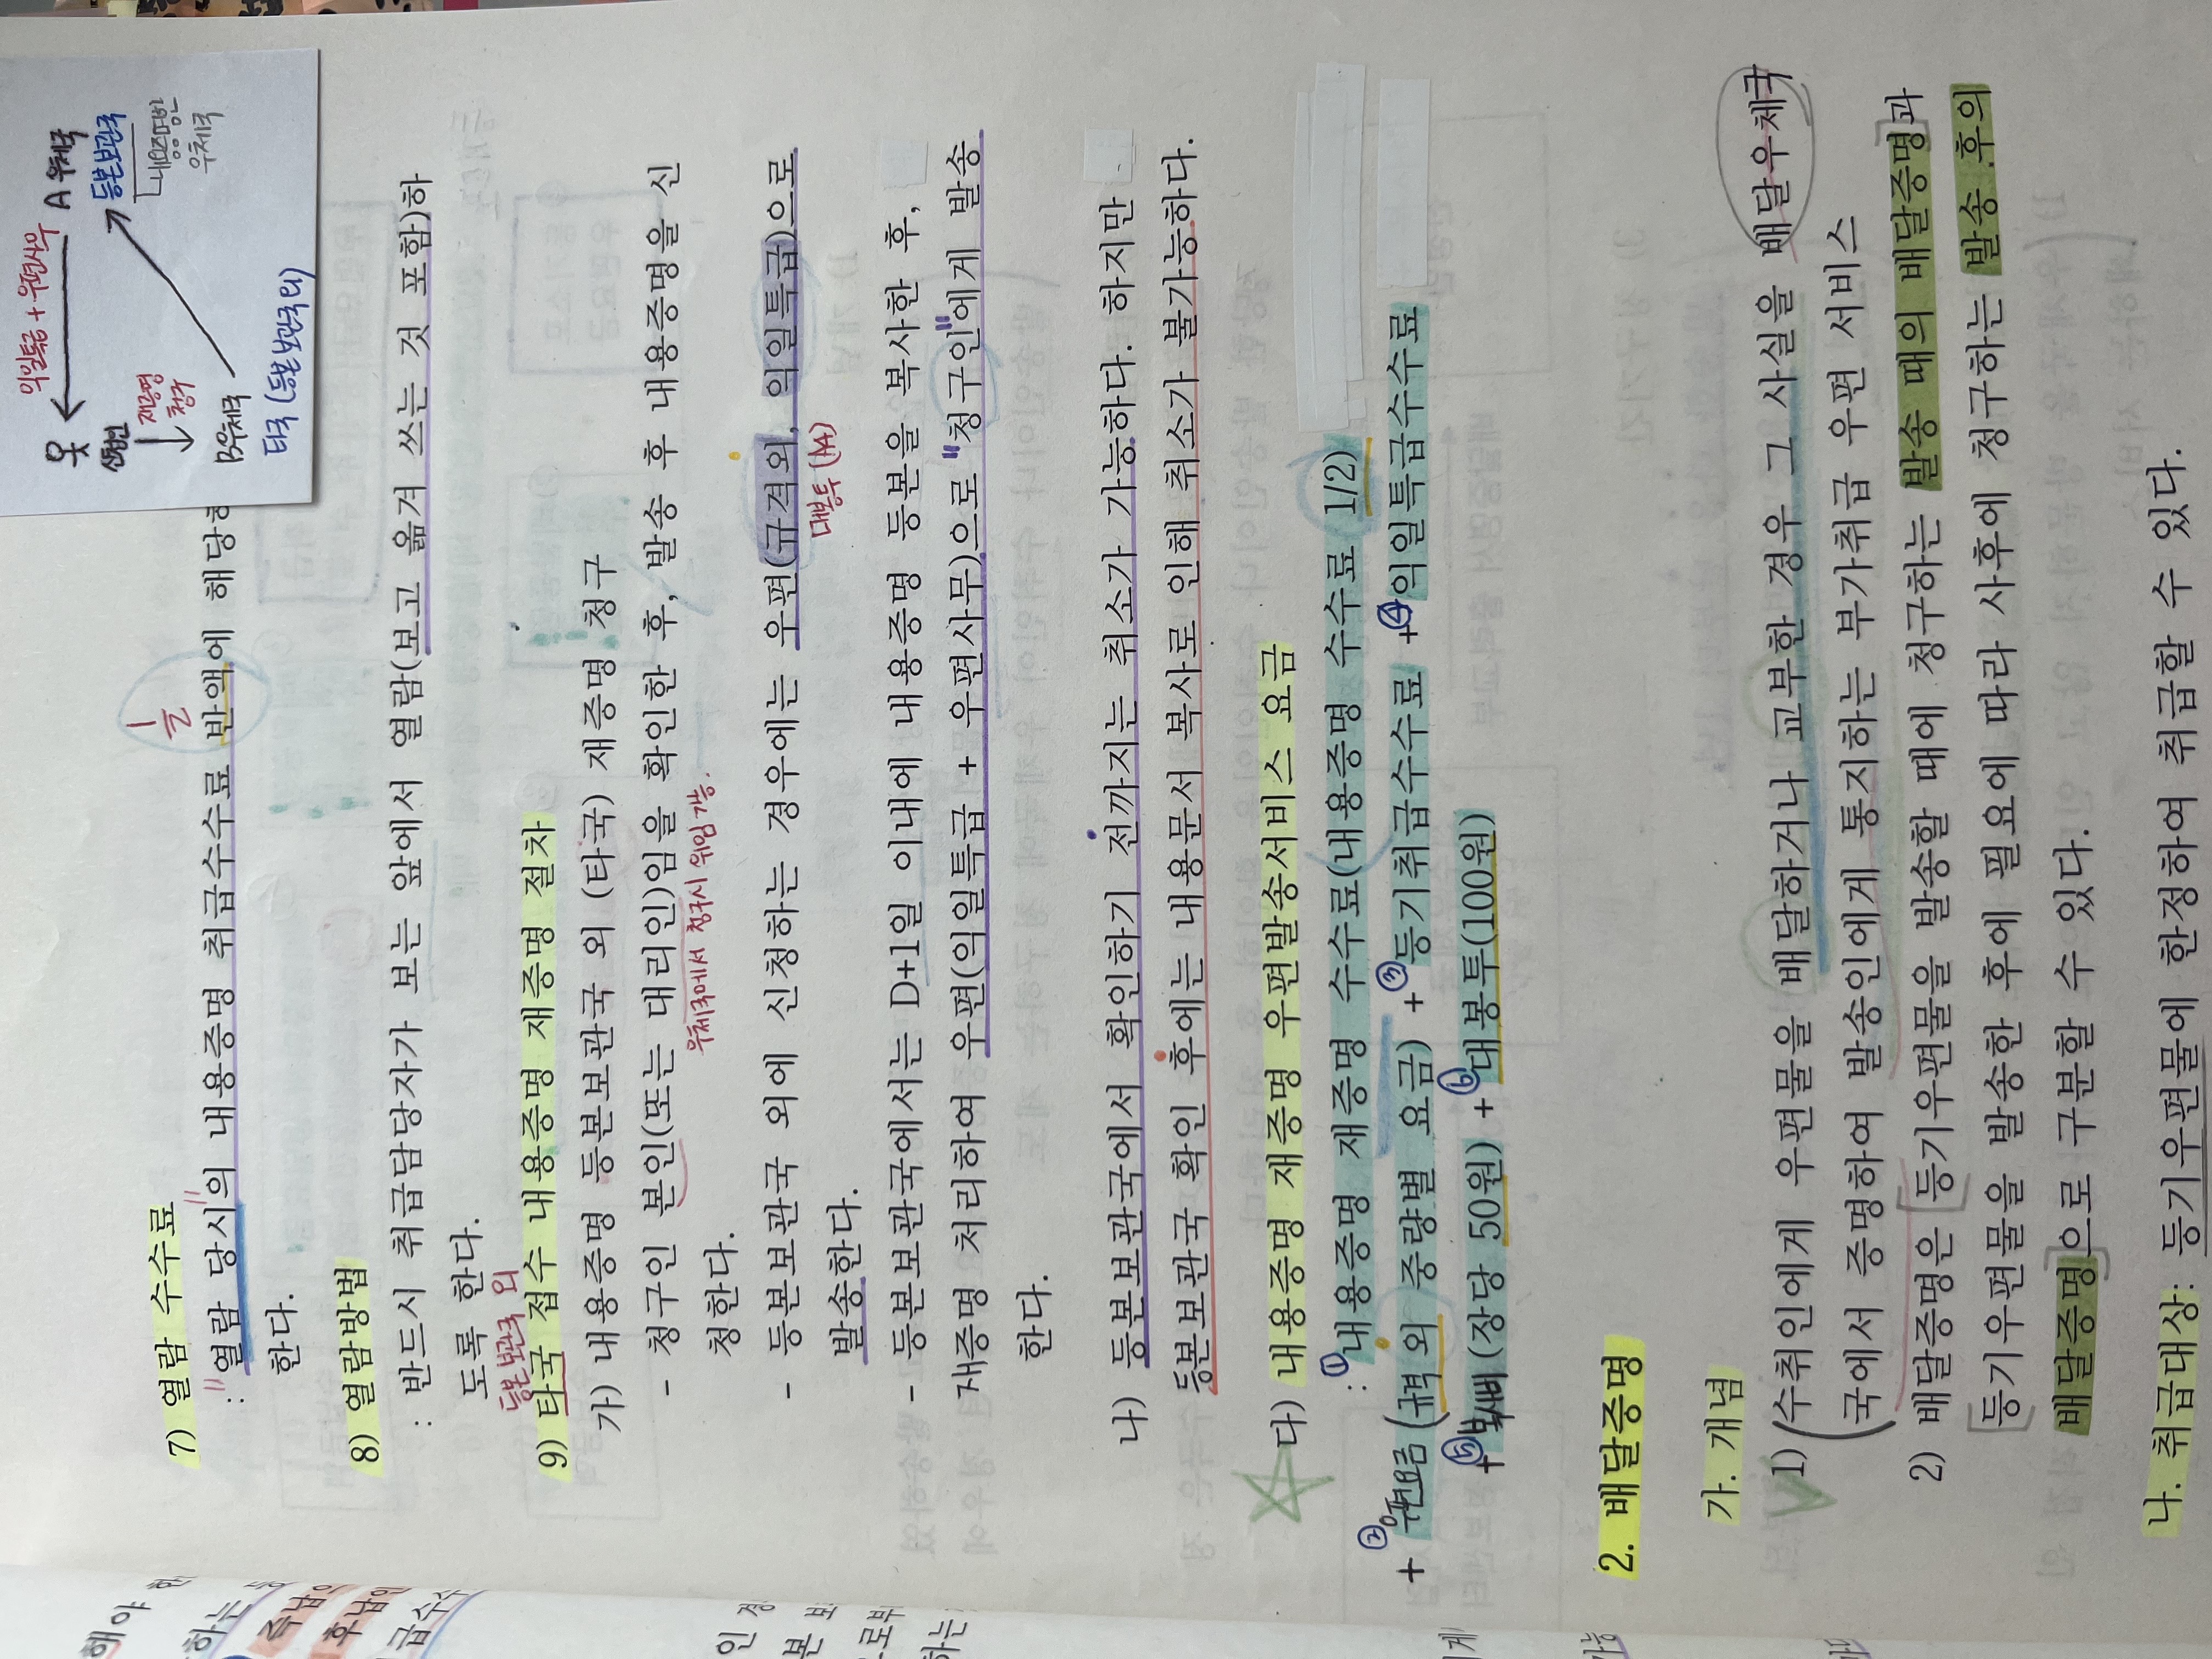 익일특급+우편사무
A 우체국
등본보관국
내용증명
우체국
재증명
청구
B우체국
타국 (등본보관국외)
7) 열람 수수료
1/2
: "열람 당시"의 내용증명 취급수수료 반액에 해당
한다.
8) 열람방법
: 반드시 취급담당자가 보는 앞에서 열람(보고 옮겨 쓰는 것 포함)하
도록 한다.
등본보관국 외
9) 타국 접수 내용증명 재증명 절차
가) 내용증명 등본보관국 외 (타국) 재증명 청구
- 청구인 본인(또는 대리인)임을 확인한 후, 발송 후 내용증명을 신
우체국에서 청구시 위임 가능.
청한다.
- 등본보관국 외에 신청하는 경우에는 우편(규격외, 익일특급)으로
대봉투(A4)
발송한다.
- 등본보관국에서는 D+1일 이내에 내용증명 등본을 복사한 후,
재증명 처리하여 우편(익일특급 + 우편사무)으로 "청구인"에게 발송
한다.
나) 등본보관국에서 확인하기 전까지는 취소가 가능하다. 하지만
등본보관국 확인 후에는 내용문서 복사로 인해 취소가 불가능하다.
다) 내용증명 재증명 우편발송서비스 요금
: ①내용증명 재증명 수수료(내용증명 수수료 1/2)
+ ②우편요금(규격 외 중량별 요금) + ③등기취급수수료 +④익일특급수수료
+⑤복사비 (장당 50원) + ⑥대봉투(100원)
2. 배달증명
가. 개념
1) (수취인에게 우편물을 배달하거나 교부한 경우 그 사실을 배달우체국
국에서 증명하여 발송인에게 통지하는 부가취급 우편 서비스
2) 배달증명은 [등기우편물을 발송할 때에 청구하는 발송 때의 배달증명]과
[등기우편물을 발송한 후에 필요에 따라 사후에 청구하는 발송 후의
배달증명]으로 구분할 수 있다.
나. 취급대상: 등기우편물에 한정하여 취급할 수 있다.
해야
하는
즉납
후납
급수수
인 경
본 보
로부
하는